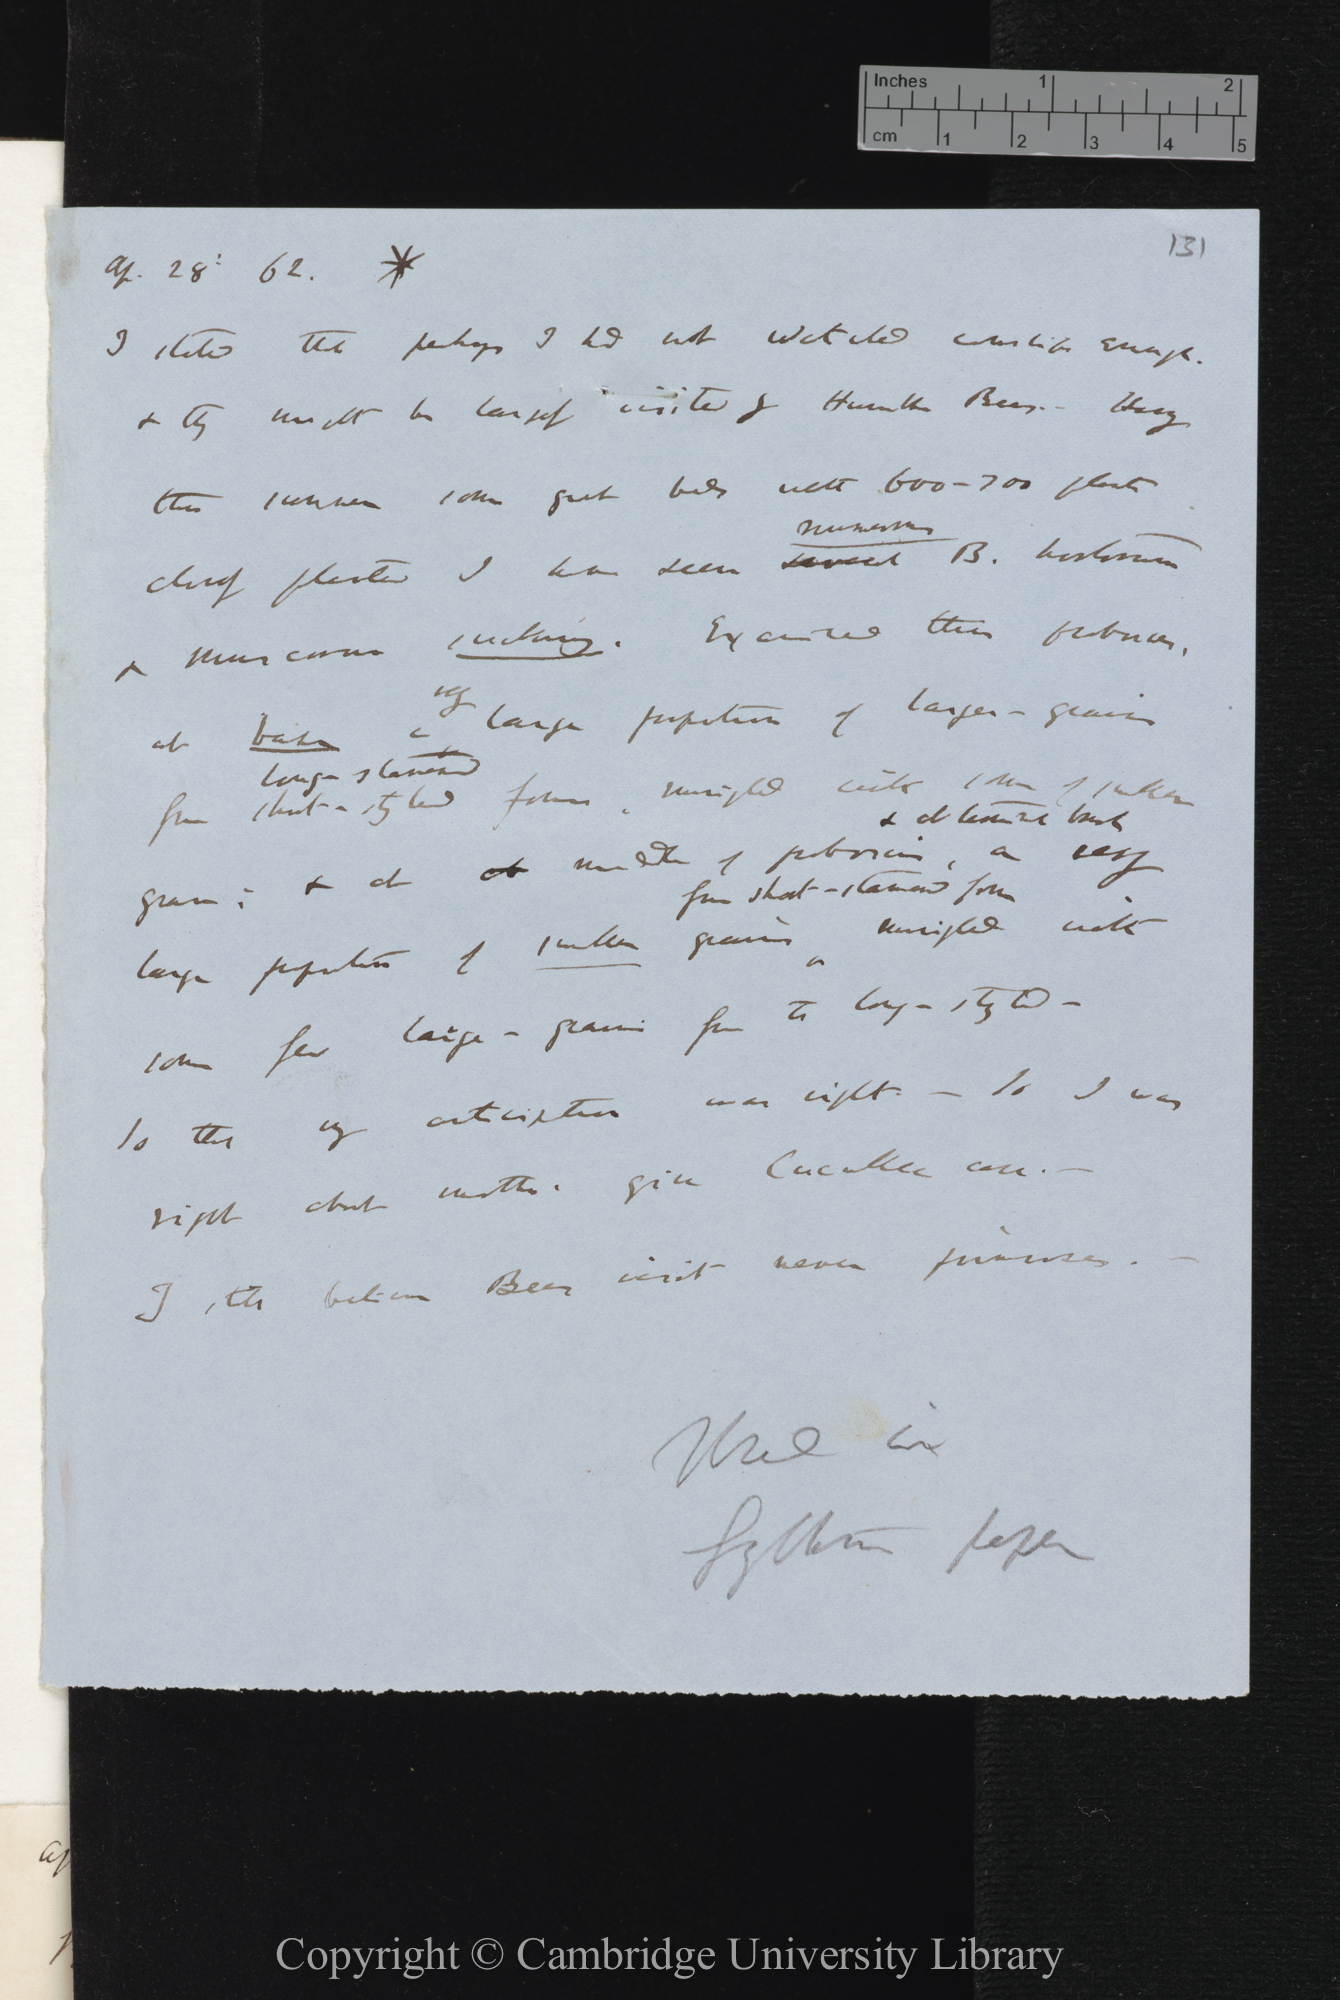 131
Ap. 28' 62.
I stated that perhaps I had not watched cowslips enough.
& they might be largely visited by Humble Bees. — Having
this summer some great beds with 600-700 plants
numerous
closely planted I have seen several B. hortorum
& Muscorum sucking. Examined their proboscis,
very
at base a large proportion of larger-grains
long-stamened
from short-styled form, mingled with some of smaller
& at lateral brush
grains; & at at middle of proboscis, a very
from short-stamened form
large proportion of smaller grains mingled with
some few large-grains from the long-styled —
So that my anticipation was right. — So I was
right about moths. give Cucullia case. —
I still believe Bees visit never primroses. —
Used in
Lythrum paper
Inches 1 2
cm 1 2 3 4 5
Copyright © Cambridge University Library